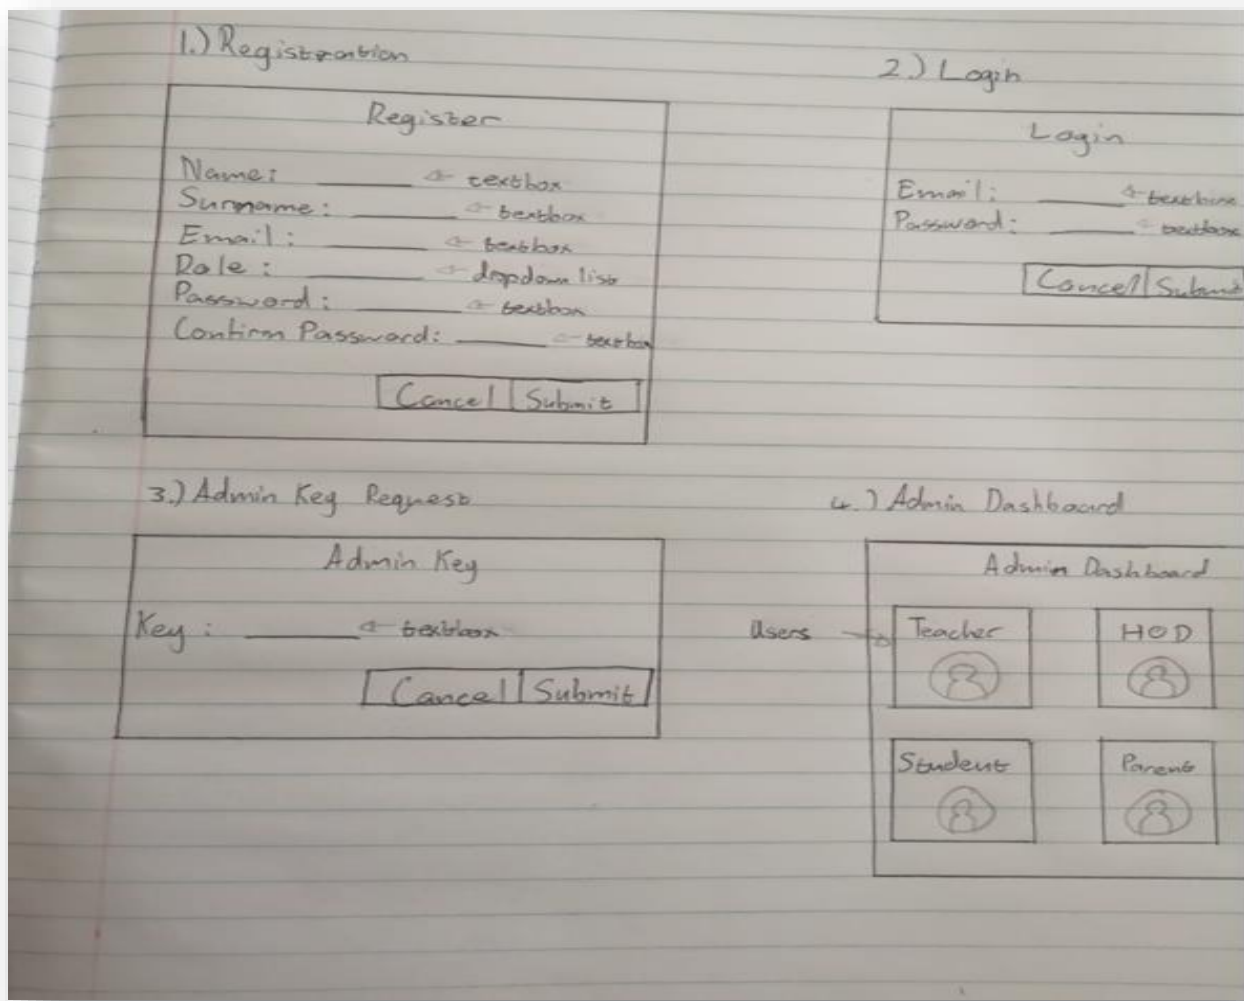 1.) Registration
Register
Name: textbox
Surname: textbox
Email: textbox
Role: dropdown list
Password: textbox
Confirm Password: textbox
Cancel Submit
2.) Login
Login
Email: textbox
Password: textbox
Cancel Submit
3.) Admin Key Request
Admin Key
Key: textbox
Cancel Submit
4.) Admin Dashboard
Admin Dashboard
Users Teacher HOD
Student Parent